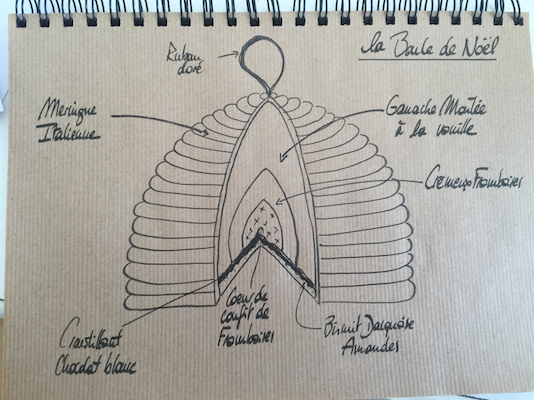 La Boule de Noël
Ruban
doré
Meringue
Italienne
Ganache Montée
à la vanille
Crémeux Framboises
Coeur de
confit de
Framboises
Biscuit Dacquoise
Amandes
Croustillant
Chocolat blanc